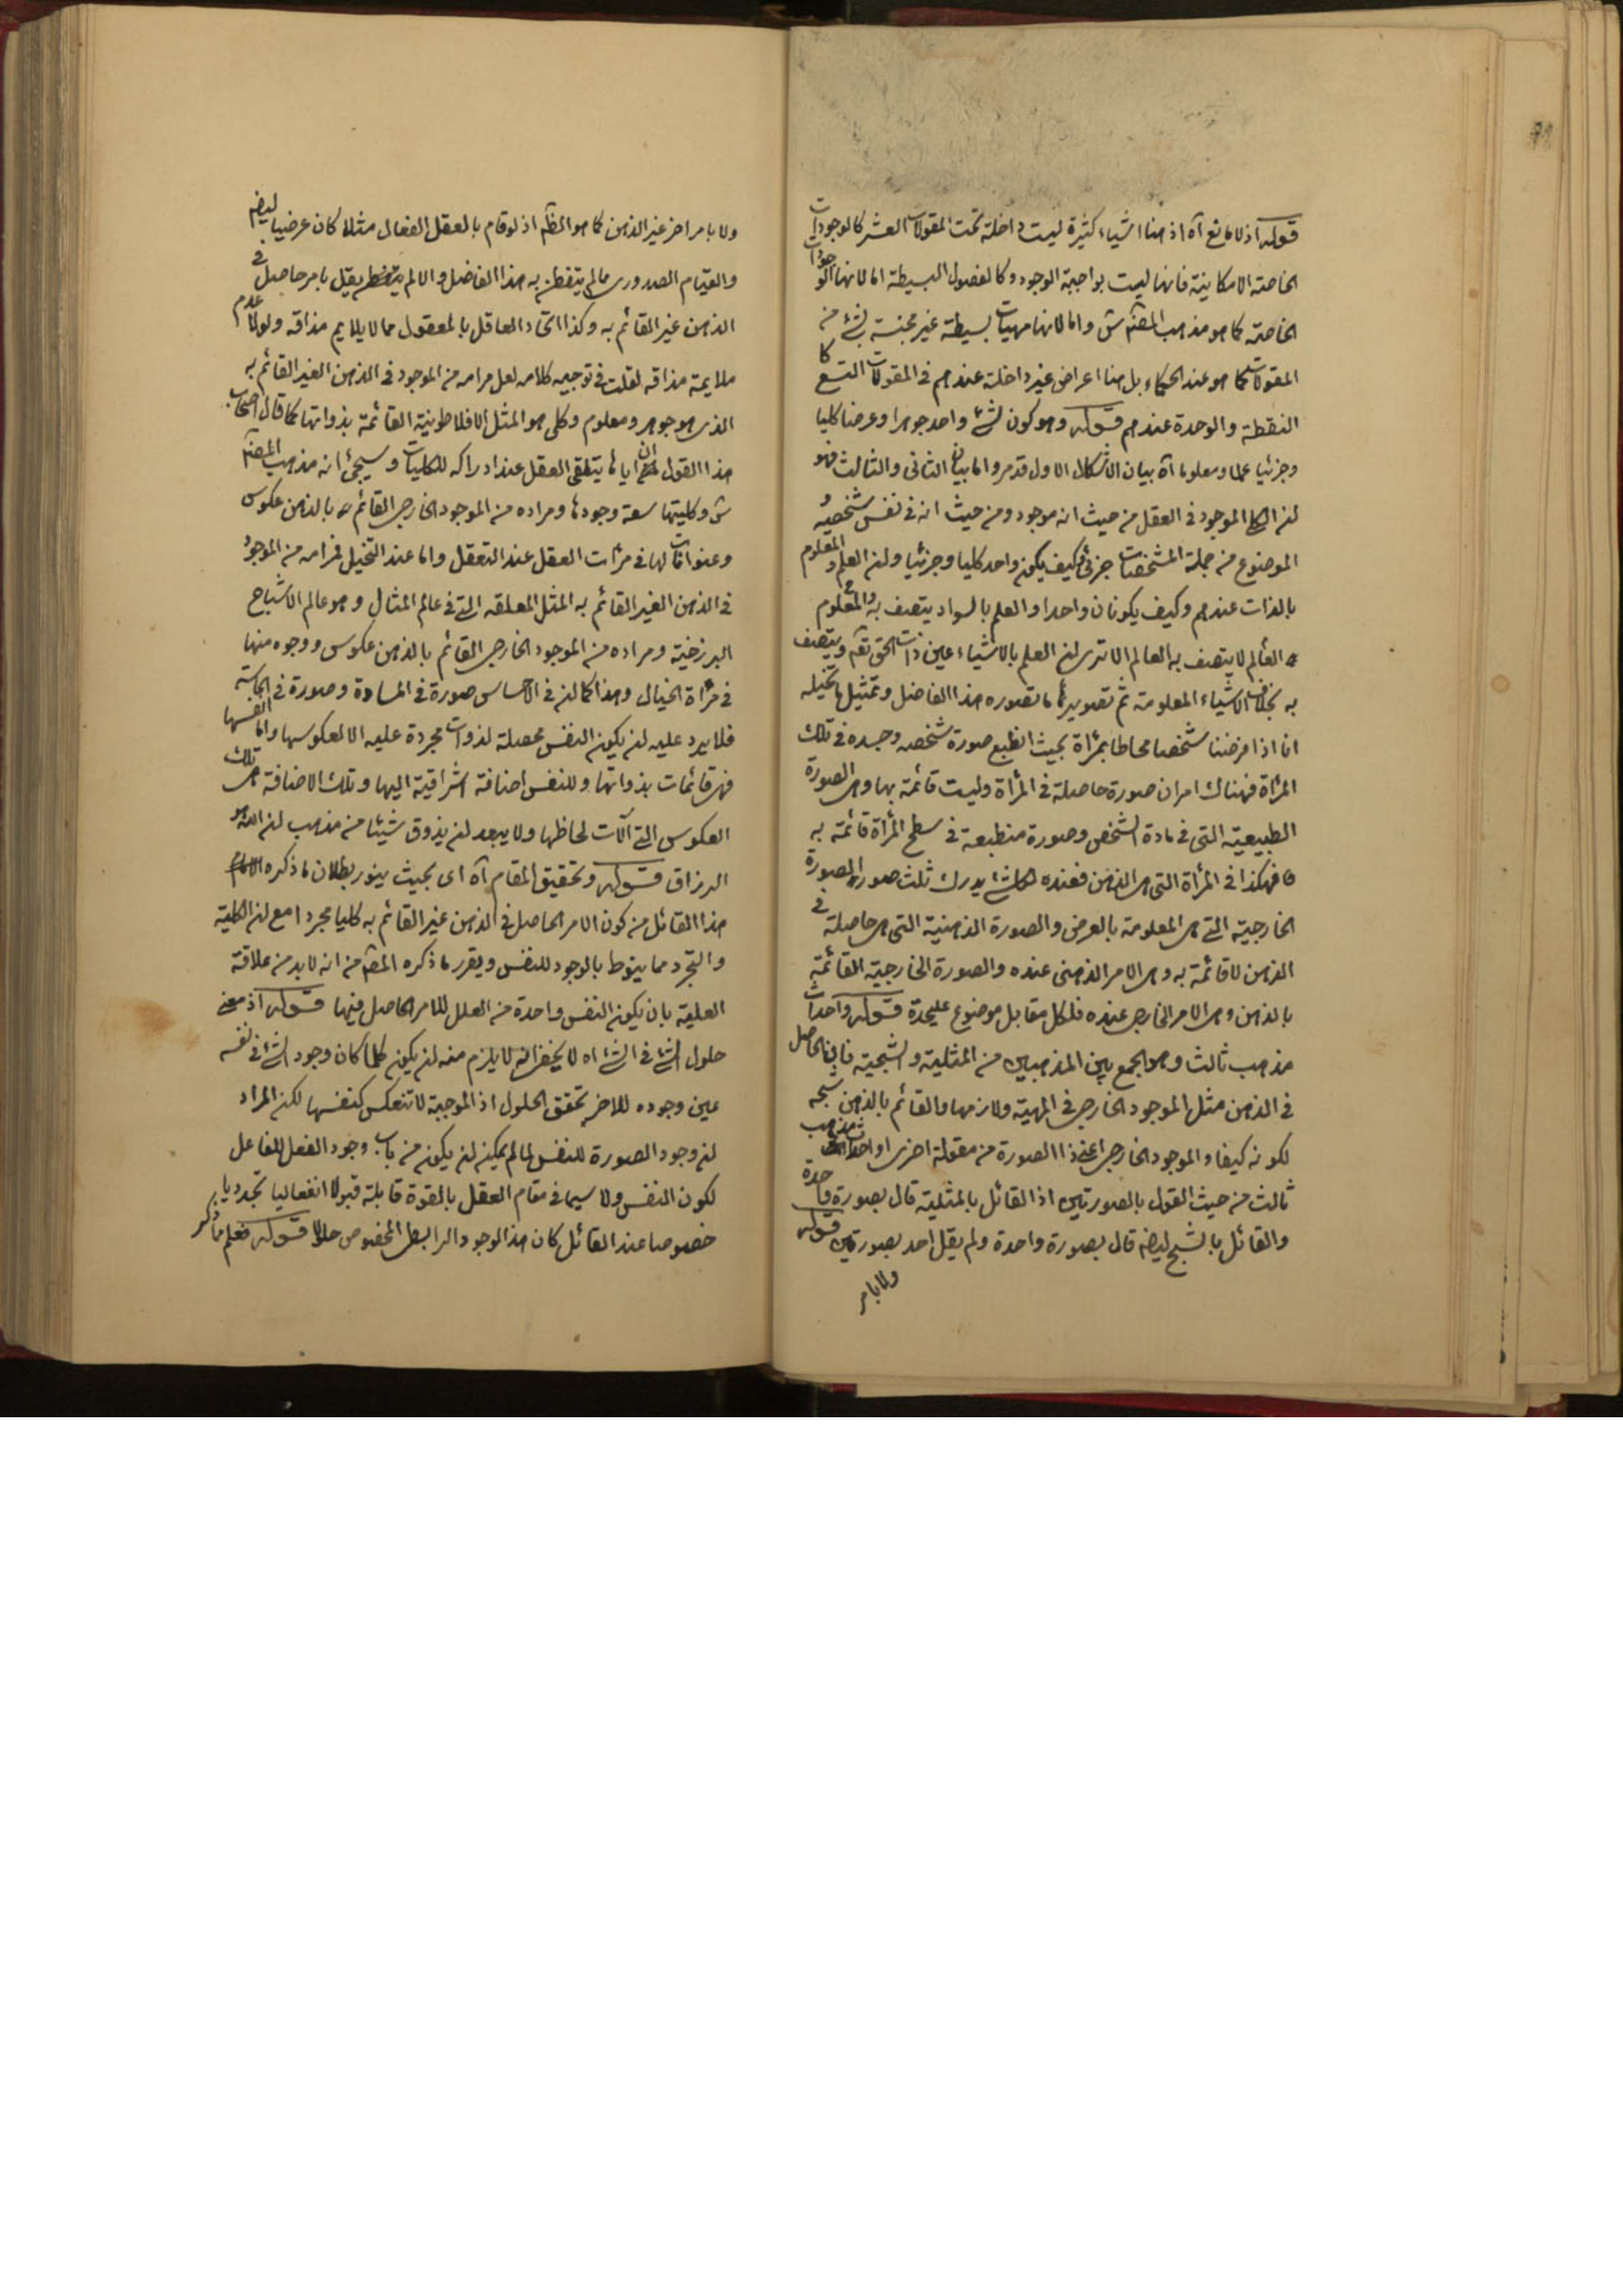 قوله اذ لا مانع آه اذ هنا اشياء كثيرة ليست داخلة تحت المقولات العشر كالوجودات
الخاصة الامكانية فانها ليست بواجبة الوجود وكالفصول البسيطة اما لانها الوجودات
الخاصة كما هو مذهب المصنف س واما لانها مهيات بسيطة غير مجنسة بشئ من
المقولات كما هو عند الحكماء بل هنا اعراض غير داخلة عندهم في المقولات التسع كا
النقطة والوحدة عندهم قوله وهو كون شئ واحد جوهرا وعرضا كليا
وجزئيا علما ومعلوما آه بيان الاشكال الاول قد مر واما بيان الثانى والثالث فهو
ان الكلى الموجود في العقل من حيث انه موجود ومن حيث انه في نفس شخصية
الموضوع من جملة المشخصات جزئى فكيف يكون واحد كليا وجزئيا وان العلم والمعلوم
بالذات عندهم وكيف يكونان واحدا والعلم بالسواد يتصف به والمعلوم
العالم لا يتصف به العالم الا ترى ان العلم بالاشياء عين ذات الحق تعالى ويتصف
به بخلاف الاشياء المعلومة ثم تصوير ما تصوره هذا الفاضل وتمثيل ما تخيله
انا اذا فرضنا شخصا محاطا بمرآة بحيث انطبع صورة شخصه وجسده في تلك
المرآة فهناك امران صورة حاصلة في المرآة وليست قائمة بها وهى الصورة
الطبيعية التى في مادة الشخص وصورة منطبعة في سطح المرآة قائمة به
فهكذا في المرآة التى هى الذهن فعنده لكل شئ يدرك ثلث صور الصورة
الخارجية التى هى المعلومة بالعرض والصورة الذهنية التى هى حاصلة في
الذهن لا قائمة به وهى الامر الذهنى عنده والصورة الخارجية القائمة
بالذهن وهى الامر الخارجى عنده فلكل مقابل موضوع عليحدة قوله واحداث
مذهب ثالث وهو الجمع بين المذهبين من المثلية والشبحية فان الحاصل
في الذهن مثل الموجود الخارجى في المهية ولازمها والقائم بالذهن شبحه
لكونه كيفا والموجود الخارجى اعنى ذا الصورة من مقولة اخرى او احداث مذهب
ثالث من حيث القول بالصورتين اذ القائل بالمثلية قال بصورة واحدة
والقائل بالشبح ايضا قال بصورة واحدة ولم يقل احد بصورتين قوله
ولا بامر
ولا بامر اخر غير الذهن كما هو الظاهر اذ لو قام بالعقل الفعال مثلا كان عرضيا ايضا
والقيام الصدورى مالم يتفطن به هذا الفاضل والا لم يقل بامر حاصل في
الذهن غير القائم به وكذا اتحاد العاقل بالمعقول مما لا يلايم مذاقه ولولا عدم
ملايمة مذاقه لقلت في توجيه كلامه لعل مرامه من الموجود في الذهن الغير القائم به
الذى هو جوهر ومعلوم وكلى هو المثل الافلاطونية القائمة بذواتها كما قال اصحاب
هذا القول ان اياها يتلقى العقل عند ادراكه للكليات وسيجئ انه مذهب المصنف
س وكليتها سعة وجودها ومراده من الموجود الخارجى القائم بالذهن عكوس
وعنوانات لها في مرآت العقل عند التعقل واما عند التخيل فمرامه من الموجود
في الذهن الغير القائم به المثل المعلقه التى في عالم المثال وهو عالم الاشباح
البرزخية ومراده من الموجود الخارجى القائم بالذهن عكوس ووجوه منها
في مرآة الخيال وهذا كما ان في الاحساس صورة في المادة وصورة في الجلبدية
فلا يرد عليه ان يكون النفس محصلة لذوات مجردة عليه الا لعكوسها واما انفسها
فهى قائمات بذواتها وللنفس اضافة اشراقية اليها وتلك الاضافة هى تلك
العكوس التى آلات لحاظها ولا يبعد ان يذوق شيئا من مذهب ان الله هو
الرزاق قوله وتحقيق المقام آه اى بحيث ينور بطلان ما ذكره
هذا القائل من كون الامر الحاصل في الذهن غير القائم به كليا مجردا مع ان الكلية
والتجرد مما ينوط بالوجود للنفس ويقرر ما ذكره المصنف من انه لابد من علاقة
العلية بان يكون النفس واحدة من العلل للامر الحاصل فيها قوله اذ معنى
حلول الشئ في الشئ اه لا يخفى انه لا يلزم منه ان يكون كلما كان وجود الشئ في نفسه
عين وجوده للاخر تحقق الحلول اذ الموجبة لا تنعكس كنفسها لكن المراد
ان وجود الصورة للنفس لما لم يمكن ان يكون من باب وجود الفعل للفاعل
لكون النفس ولا سيما في مقام العقل بالقوة قابلة قبولا انفعاليا تجدديا
خصوصا عند القائل كان هذا الوجود الرابطى المخصوص حلولا قوله فعلم مما ذكر